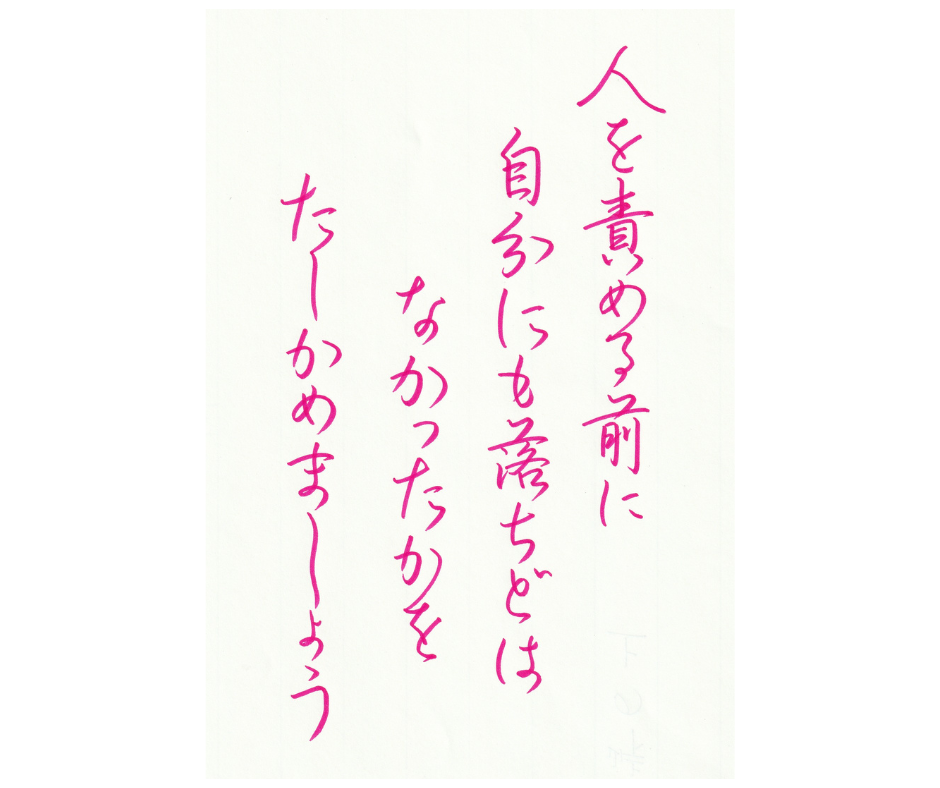 人を責める前に
自分にも落ちどは
なかったかを
たしかめましょう